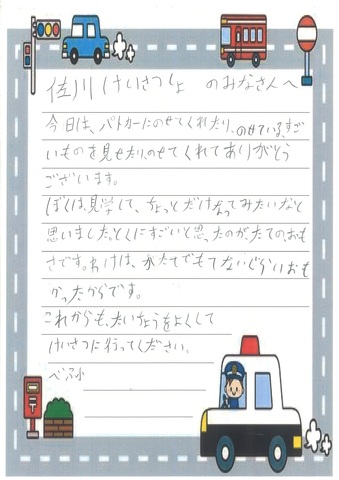 佐川けいさつしょ のみなさんへ
今日は、パトカーにのせてくれたり、のせている、すご
いものを見せたり、のせてくれてありがとう
ございます。
ぼくは、見学して、ちょっとだけなってみたいなと
思いました。とくにすごいと思ったのが、たての、おも
さです。わけは、かたてでもてないぐらいおも
かったからです。
これからも、たいちょうをよくして
けいさつに行ってください。
べふ小